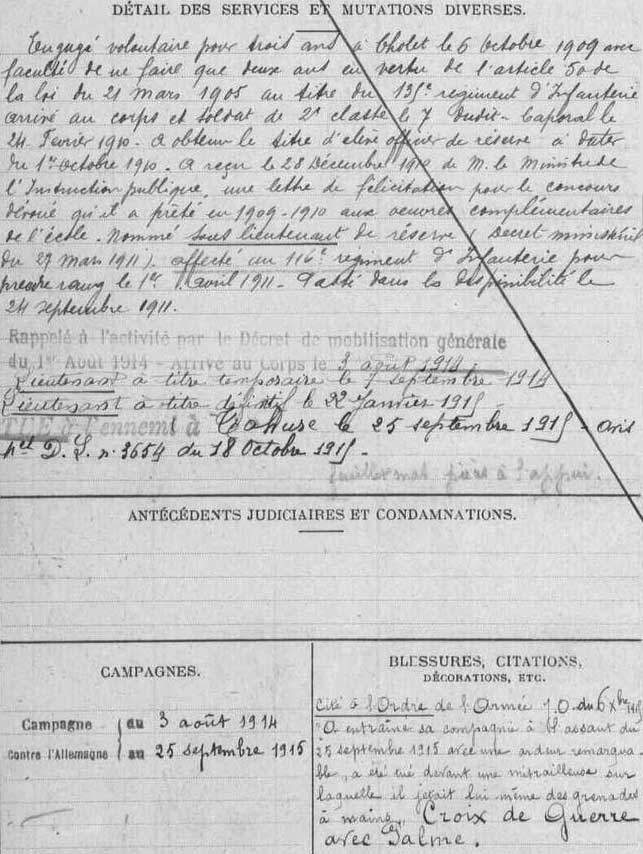 DÉTAIL DES SERVICES ET MUTATIONS DIVERSES.
Engagé volontaire pour trois ans à Cholet le 6 Octobre 1909 avec
faculté de ne faire que deux ans en vertu de l'article 50 de
la loi du 21 mars 1905 au titre du 135e regiment d'Infanterie
arrivé au corps et soldat de 2e classe le 7 dudit - Caporal le
24 Fevrier 1910. A obtenu le titre d'élève officier de réserve à dater
du 1er Octobre 1910. A reçu le 28 Décembre 1910 de M. le Ministre de
l'Instruction publique, une lettre de félicitation pour le concours
dévoué qu'il a prêté en 1909-1910 aux oeuvres complémentaires
de l'école. Nommé sous lieutenant de réserve (Décret ministériel
du 27 mars 1911). affecté au 116e regiment d'Infanterie pour
prendre rang le 1er avril 1911. Passé dans la disponibilité le
24 septembre 1911.
Rappelé à l'activité par le Décret de mobilisation générale
du 1er Août 1914 - Arrivé au Corps le 3 août 1914
Lieutenant à titre temporaire le 7 septembre 1914
Lieutenant à titre définitif le 22 Janvier 1915
TUÉ à l'ennemi à Tahure le 25 septembre 1915 - avis
mel D. L. n° 3654 du 18 Octobre 1915 -
pièce à l'appui.
ANTÉCÉDENTS JUDICIAIRES ET CONDAMNATIONS.
CAMPAGNES.
Campagne contre l'Allemagne
du 3 août 1914
au 25 septembre 1915
BLESSURES, CITATIONS,
DÉCORATIONS, ETC.
Cité à l'Ordre de l'Armée J.O. du 6 Xbre 1915
"A entraîné sa compagnie à l'assaut du
25 septembre 1915 avec une ardeur remarqua-
ble, a été tué devant une mitrailleuse sur
laquelle il jetait lui même des grenades
à mains. Croix de Guerre
avec Palme.